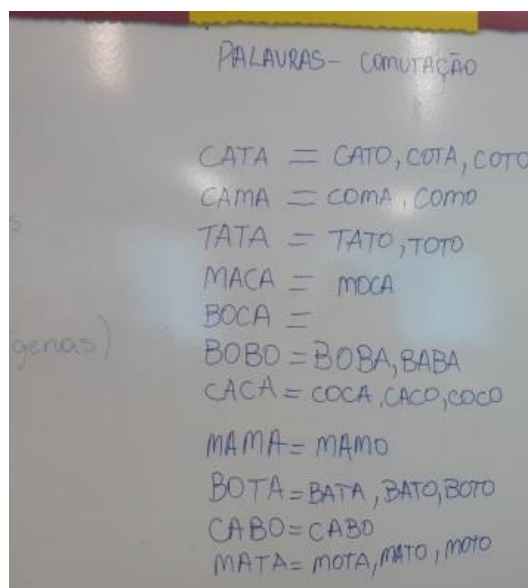 PALAVRAS - COMUTAÇÃO
CATA = CATO, COTA, COTO
CAMA = COMA, COMO
TATA = TATO, TOTO
MACA = MOCA
BOCA =
genas)
BOBO = BOBA, BABA
CACA = COCA, CACO, COCO
MAMA = MAMO
BOTA = BATA, BATO, BOTO
CABO = CABO
MATA = MOTA, MATO, MOTO